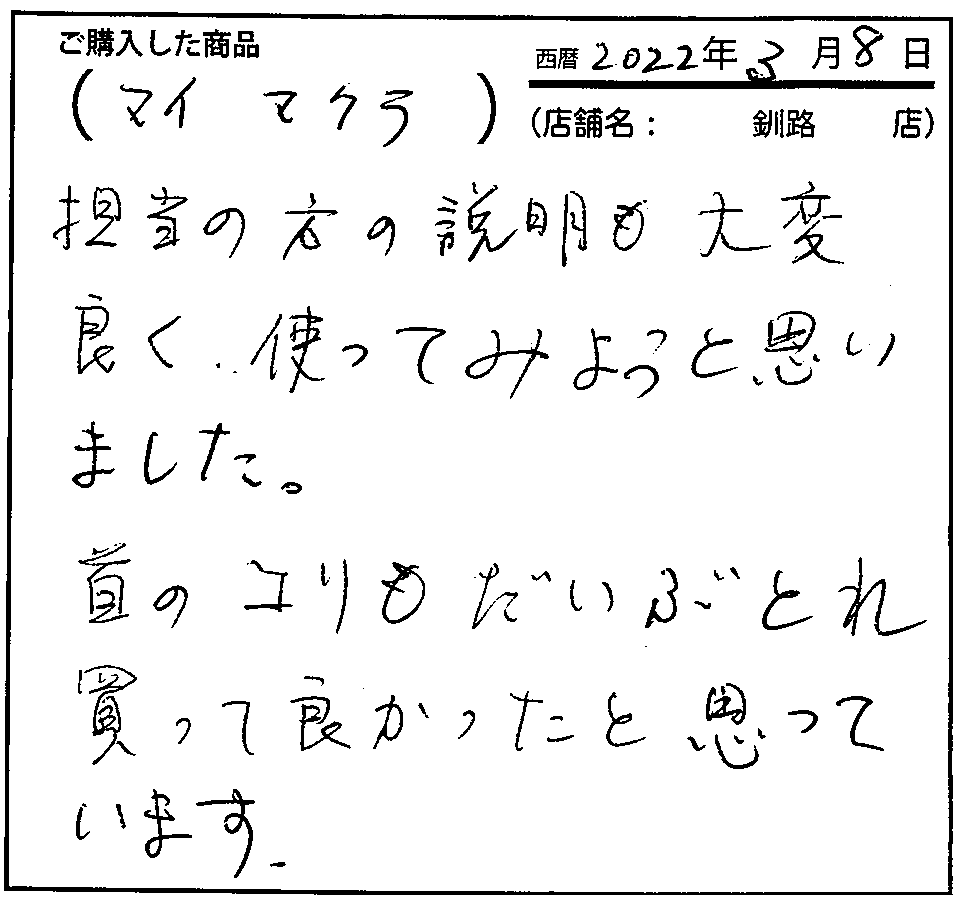 ご購入した商品
西暦 2022年 3月 8日
(マイ マクラ)
(店舗名： 釧路 店)
担当の方の説明も大変
良く、使ってみようと思い
ました。
首のコリもだいぶとれ
買って良かったと思って
います.